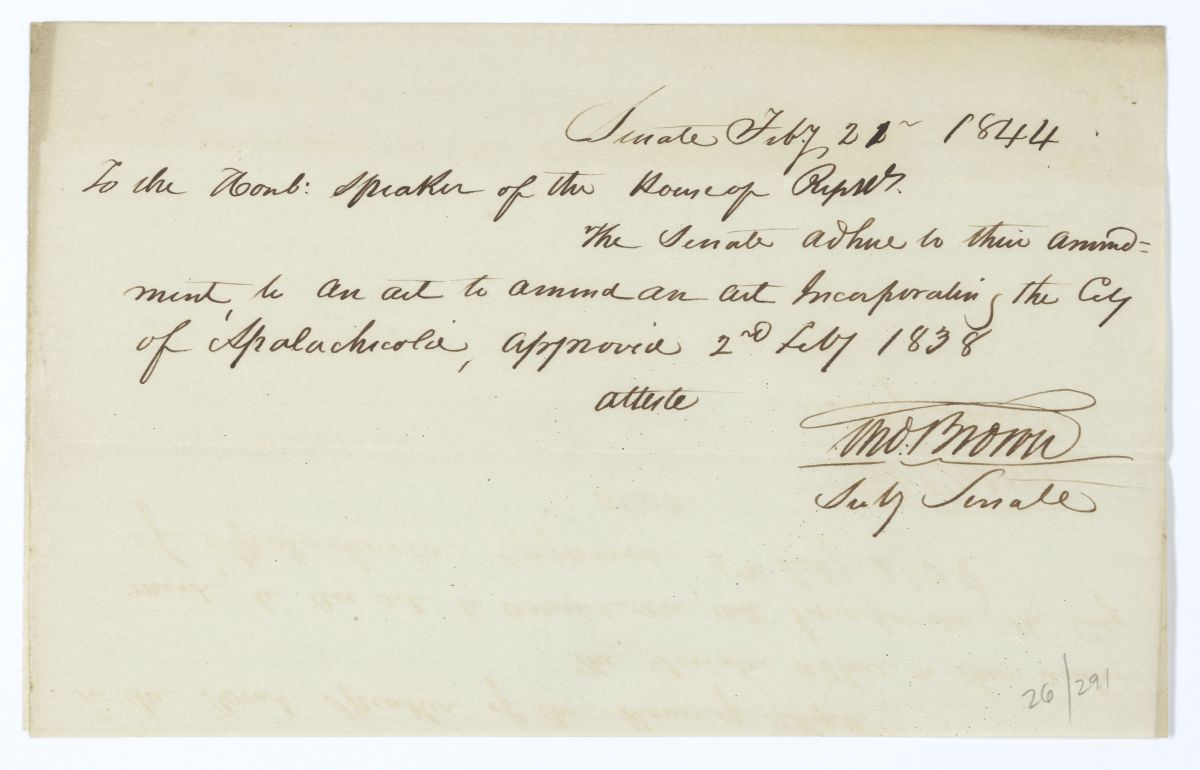 Senate Feby 21st 1844
To the Honb: Speaker of the House of Reps.
The Senate adhere to their amend=
ment, to an act to amend an act Incorporating the City
of Apalachicola, approved 2nd Feby 1838
atteste
Tho. Brown
Secy Senate
26/291